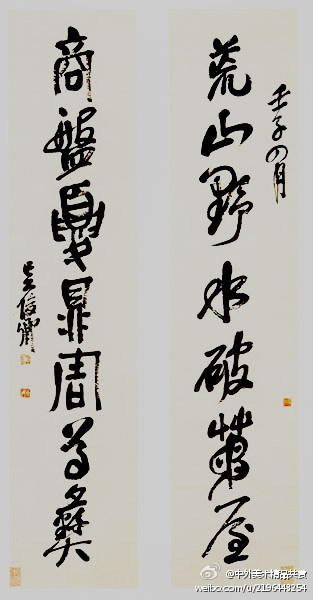 壬子四月
荒山野水破屋
商盤夏鼎周尊彝
吳俊卿
@中外美术精品共赏
weibo.com/u/2196448254